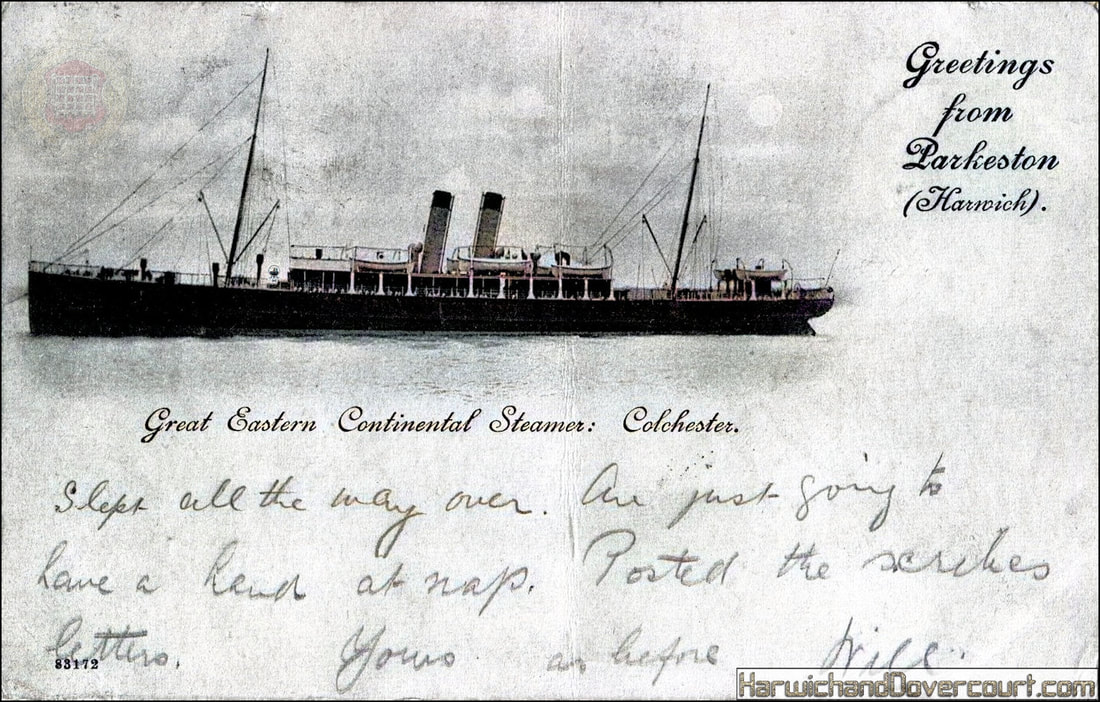 Greetings
from
Parkeston
(Harwich).
Great Eastern Continental Steamer: Colchester.
Slept all the way over. Am just going to
have a hand at nap. Posted the
letters. Yours as before Will.
83172
HarwichandDovercourt.com